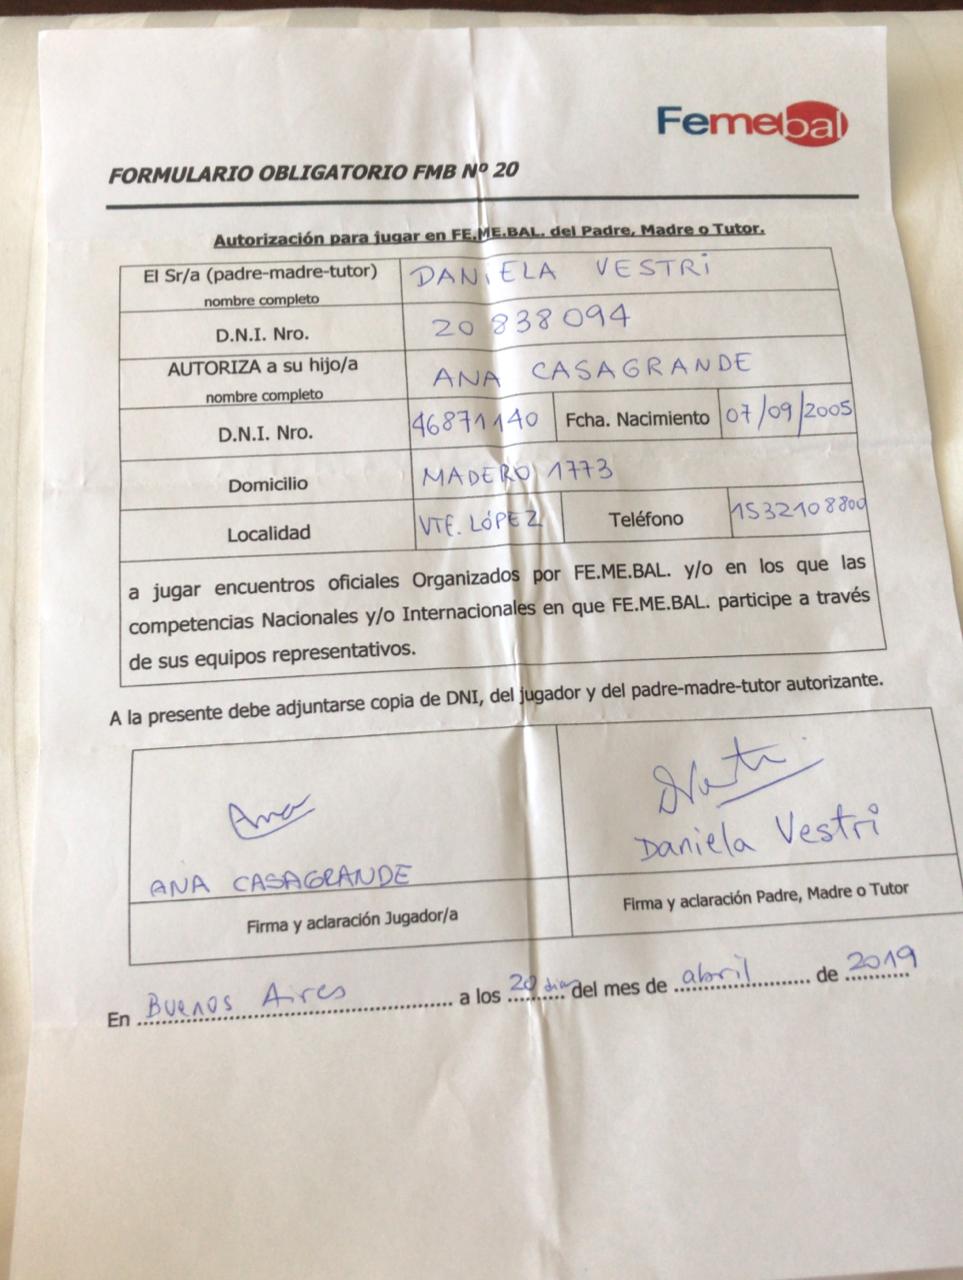 Femebal
FORMULARIO OBLIGATORIO FMB Nº 20
Autorización para jugar en FE.ME.BAL. del Padre, Madre o Tutor.
El Sr/a (padre-madre-tutor) DANIELA VESTRI
nombre completo
D.N.I. Nro. 20 838 094
AUTORIZA a su hijo/a ANA CASAGRANDE
nombre completo
D.N.I. Nro. 46871140 Fcha. Nacimiento 07/09/2005
Domicilio MADERO 1773
Localidad VTE. LÓPEZ Teléfono 1532108800
a jugar encuentros oficiales Organizados por FE.ME.BAL. y/o en los que las
competencias Nacionales y/o Internacionales en que FE.ME.BAL. participe a través
de sus equipos representativos.
A la presente debe adjuntarse copia de DNI, del jugador y del padre-madre-tutor autorizante.
Ana
ANA CASAGRANDE
Firma y aclaración Jugador/a
Daniela Vestri
Firma y aclaración Padre, Madre o Tutor
En Buenos Aires a los 20 dias del mes de abril de 2019